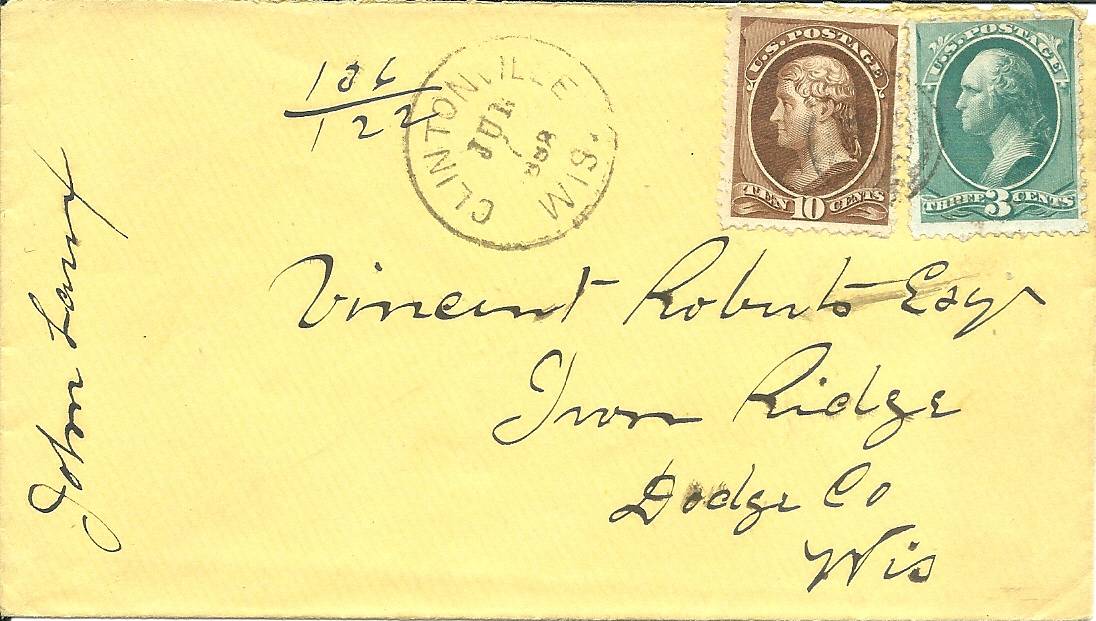 106
122
CLINTONVILLE
JUL
WIS.
U.S. POSTAGE
TEN 10 CENTS
U.S. POSTAGE
THREE 3 CENTS
Vincent Roberts Esqr
Iron Ridge
Dodge Co
Wis
John